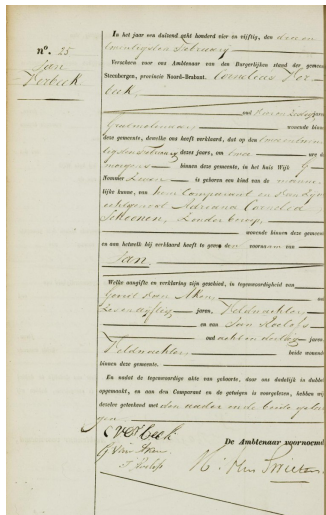 nº. 25
Jan
Verbeek
In het jaar een duizend acht honderd vier en vijftig, den drie en
twintigsten Februarij
Verscheen voor ons Ambtenaar van den Burgerlijken stand der gemeente
Steenbergen, provincie Noord-Brabant. Cornelis Ver
beek,
oud jaren,
wonende binnen
deze gemeente, dewelke ons heeft verklaard, dat op den twee en twin
tigsten Februarij dezes jaars, om twee ure des
morgens binnen deze gemeente, in het huis Wijk G
Nommer is geboren een kind van de manne
lijke kunne, van hem Comparant en van zijne
echtgenoot Adriana Cornelia
Schoonen, zonder beroep,
wonende binnen deze gemeente
en aan hetwelk hij verklaard heeft te geven den voornaam van
Jan.
Welke aangifte en verklaring zijn geschied, in tegenwoordigheid van
Gerrit van
zeven en vijftig jaren, Veldwachter
en van Jan Roelofs
oud acht en dertig jaren,
Veldwachter, beide wonende
binnen deze gemeente.
En nadat de tegenwoordige akte van geboorte, door ons dadelijk in dubbel
opgemaakt, en aan den Comparant en de getuigen is voorgelezen, hebben wij
dezelve geteekend met den vader en de beide getui
gen.
C Verbeek
G van
J Roelofs
De Ambtenaar voornoemd